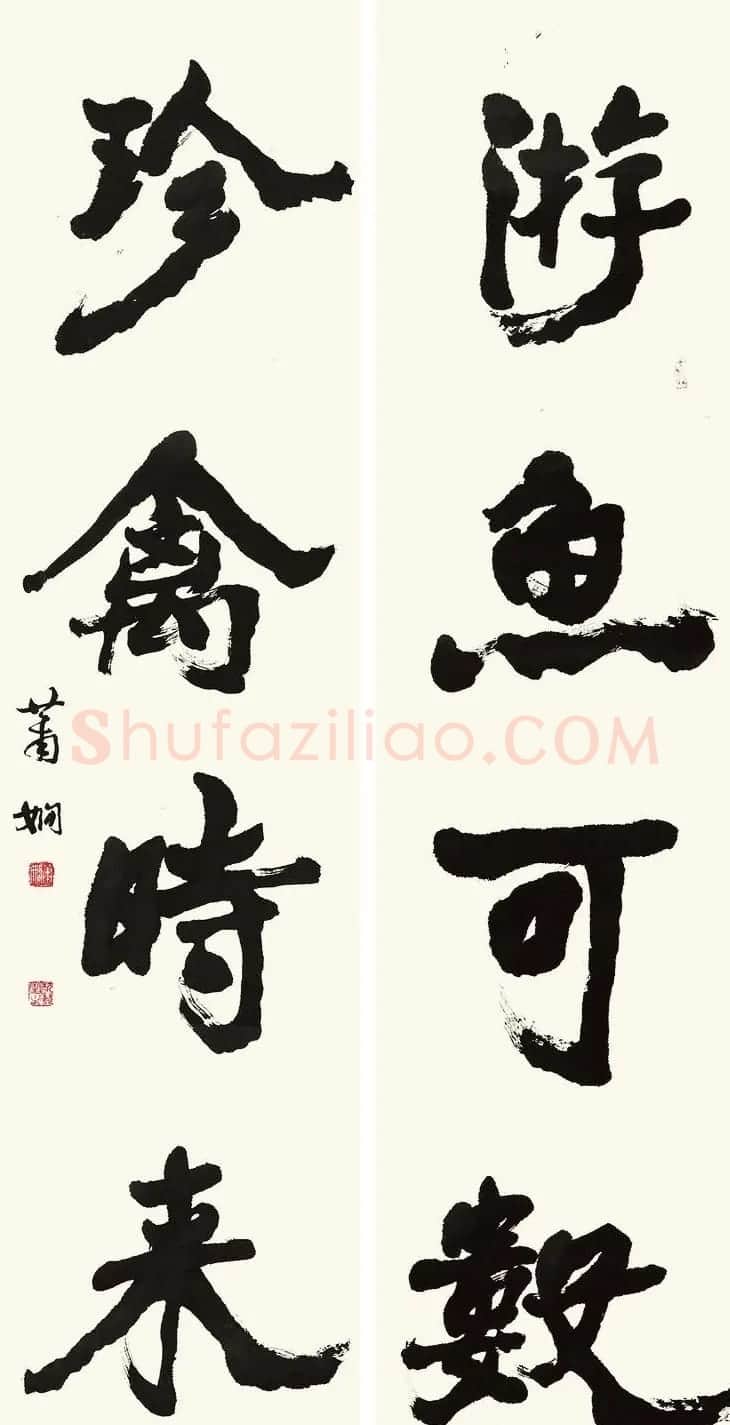 游魚可數
珍禽時来
蕭嫻
Shufaziliao.COM